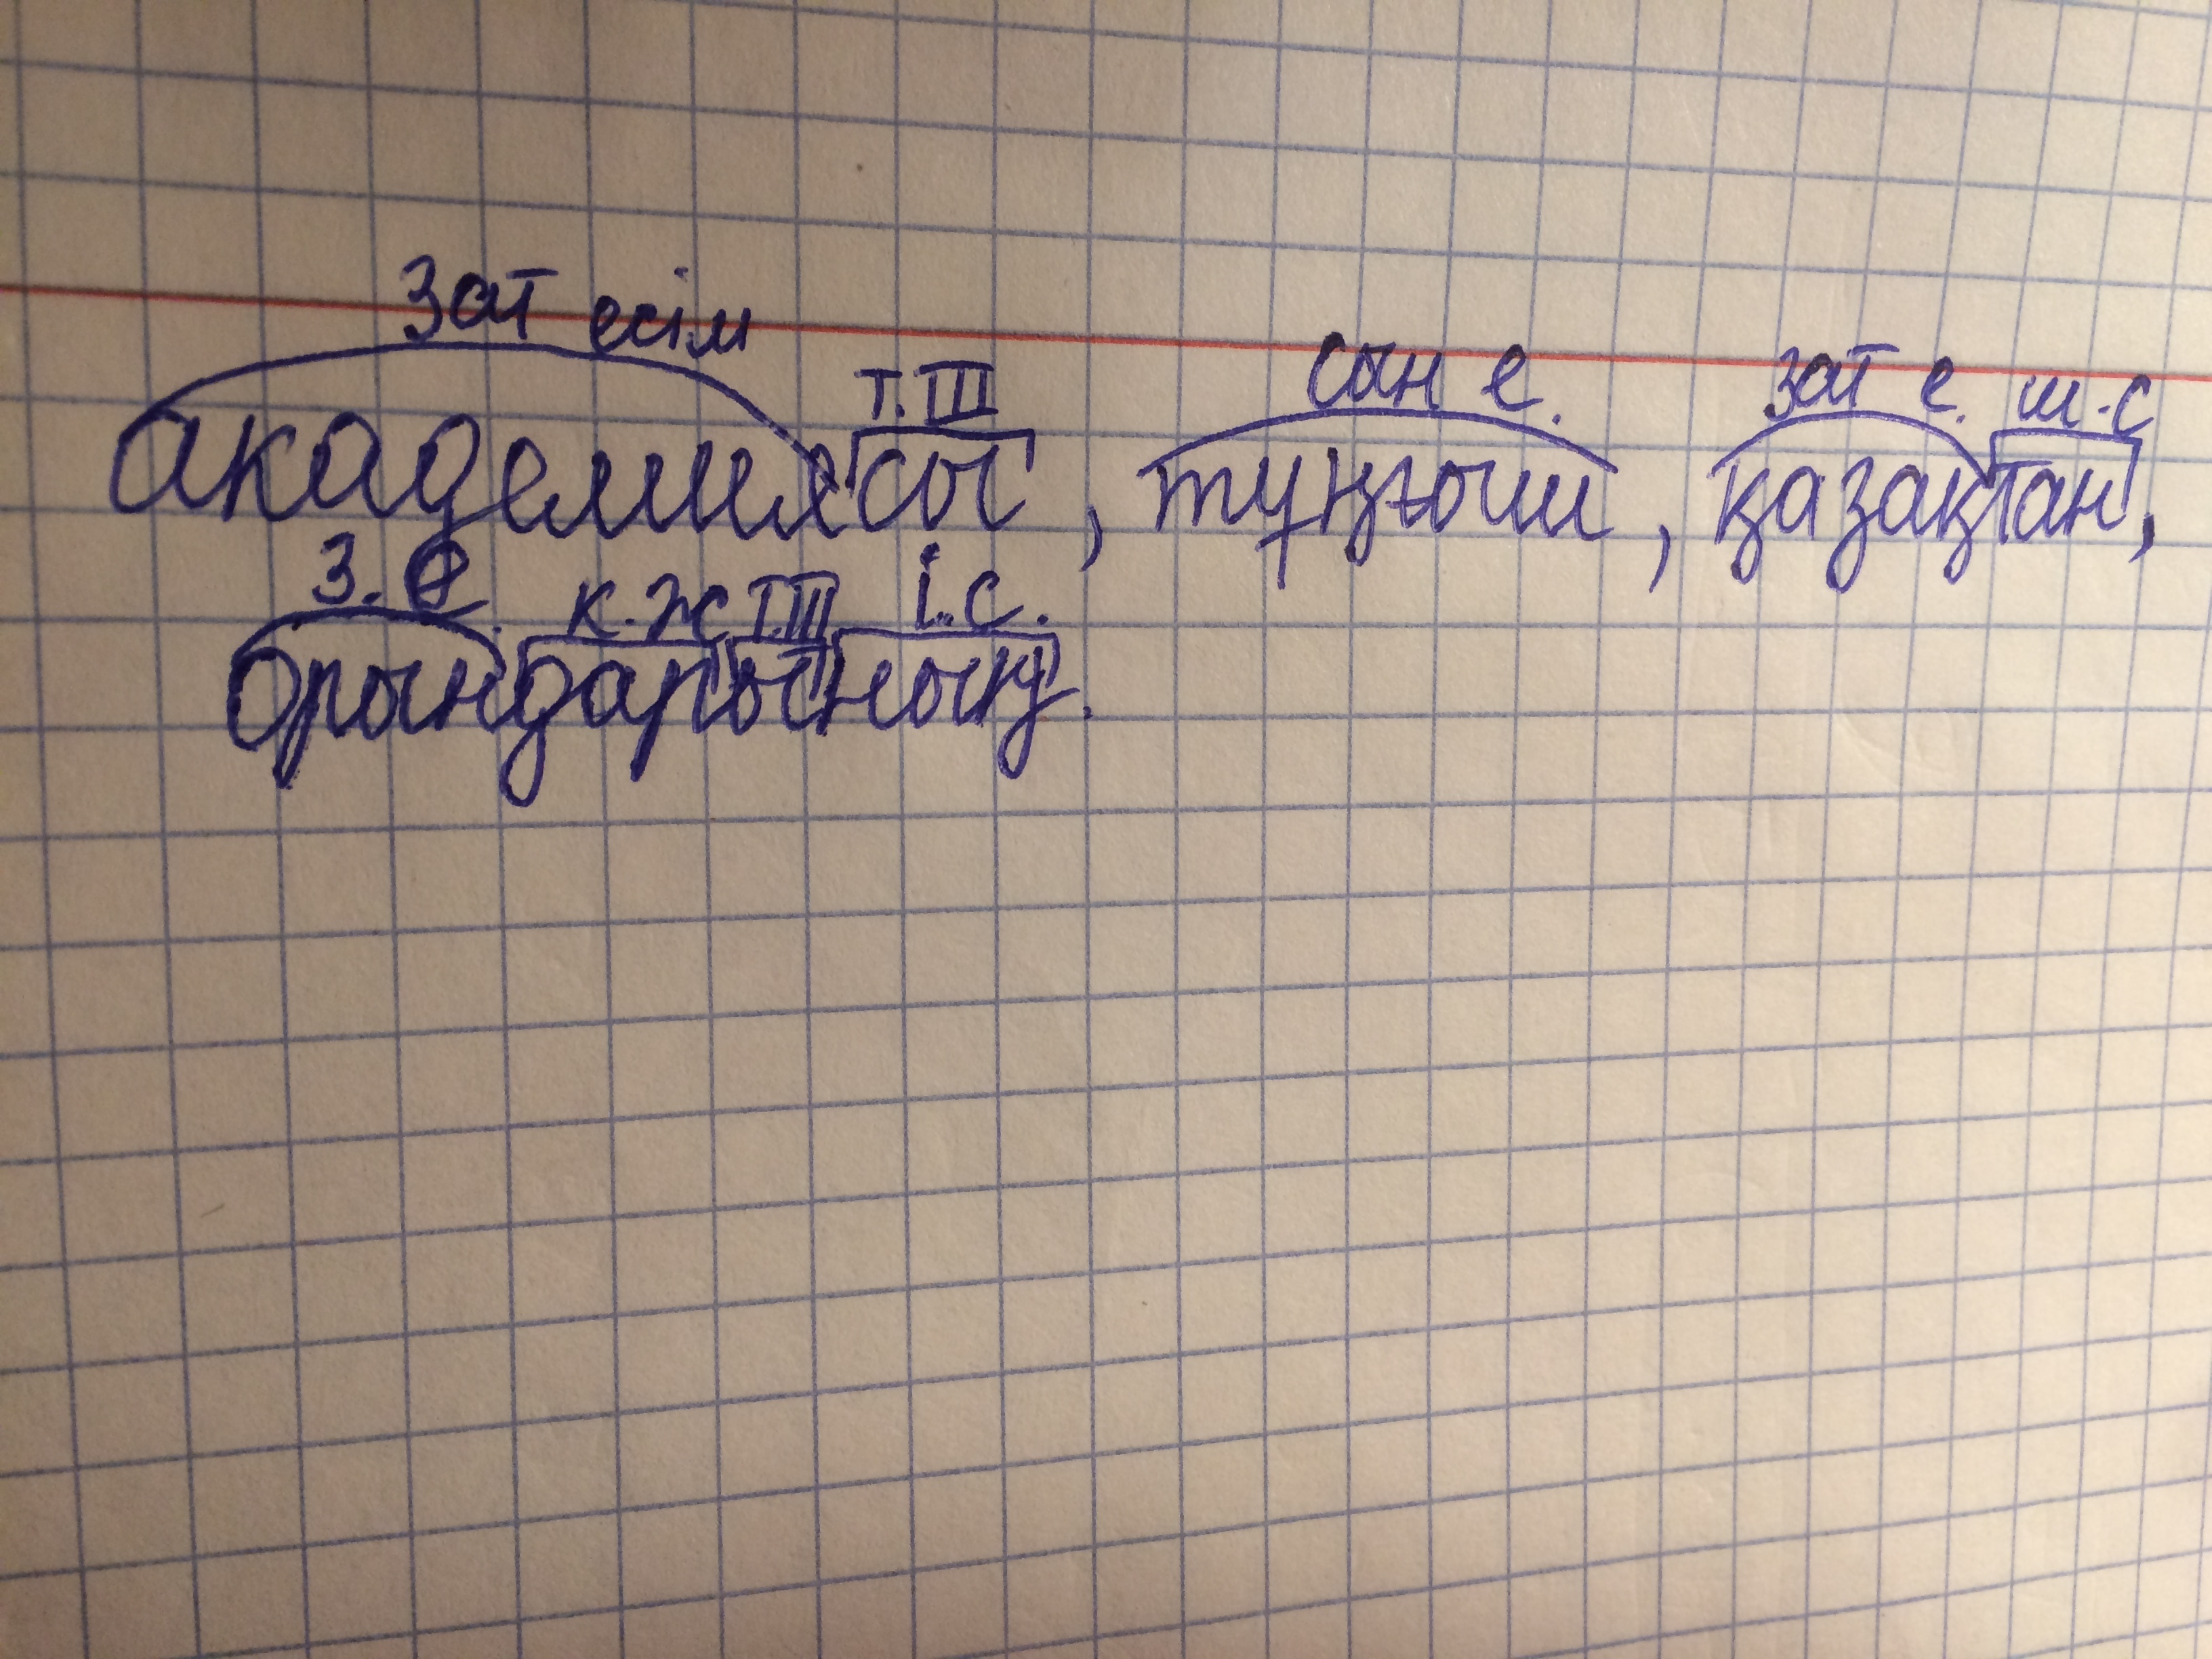 зат есім т.III сын е. зат е. ш.с
академиясы, тұңғыш, қазақтан,
з. е. к.ж т.III і.с.
орындарының.